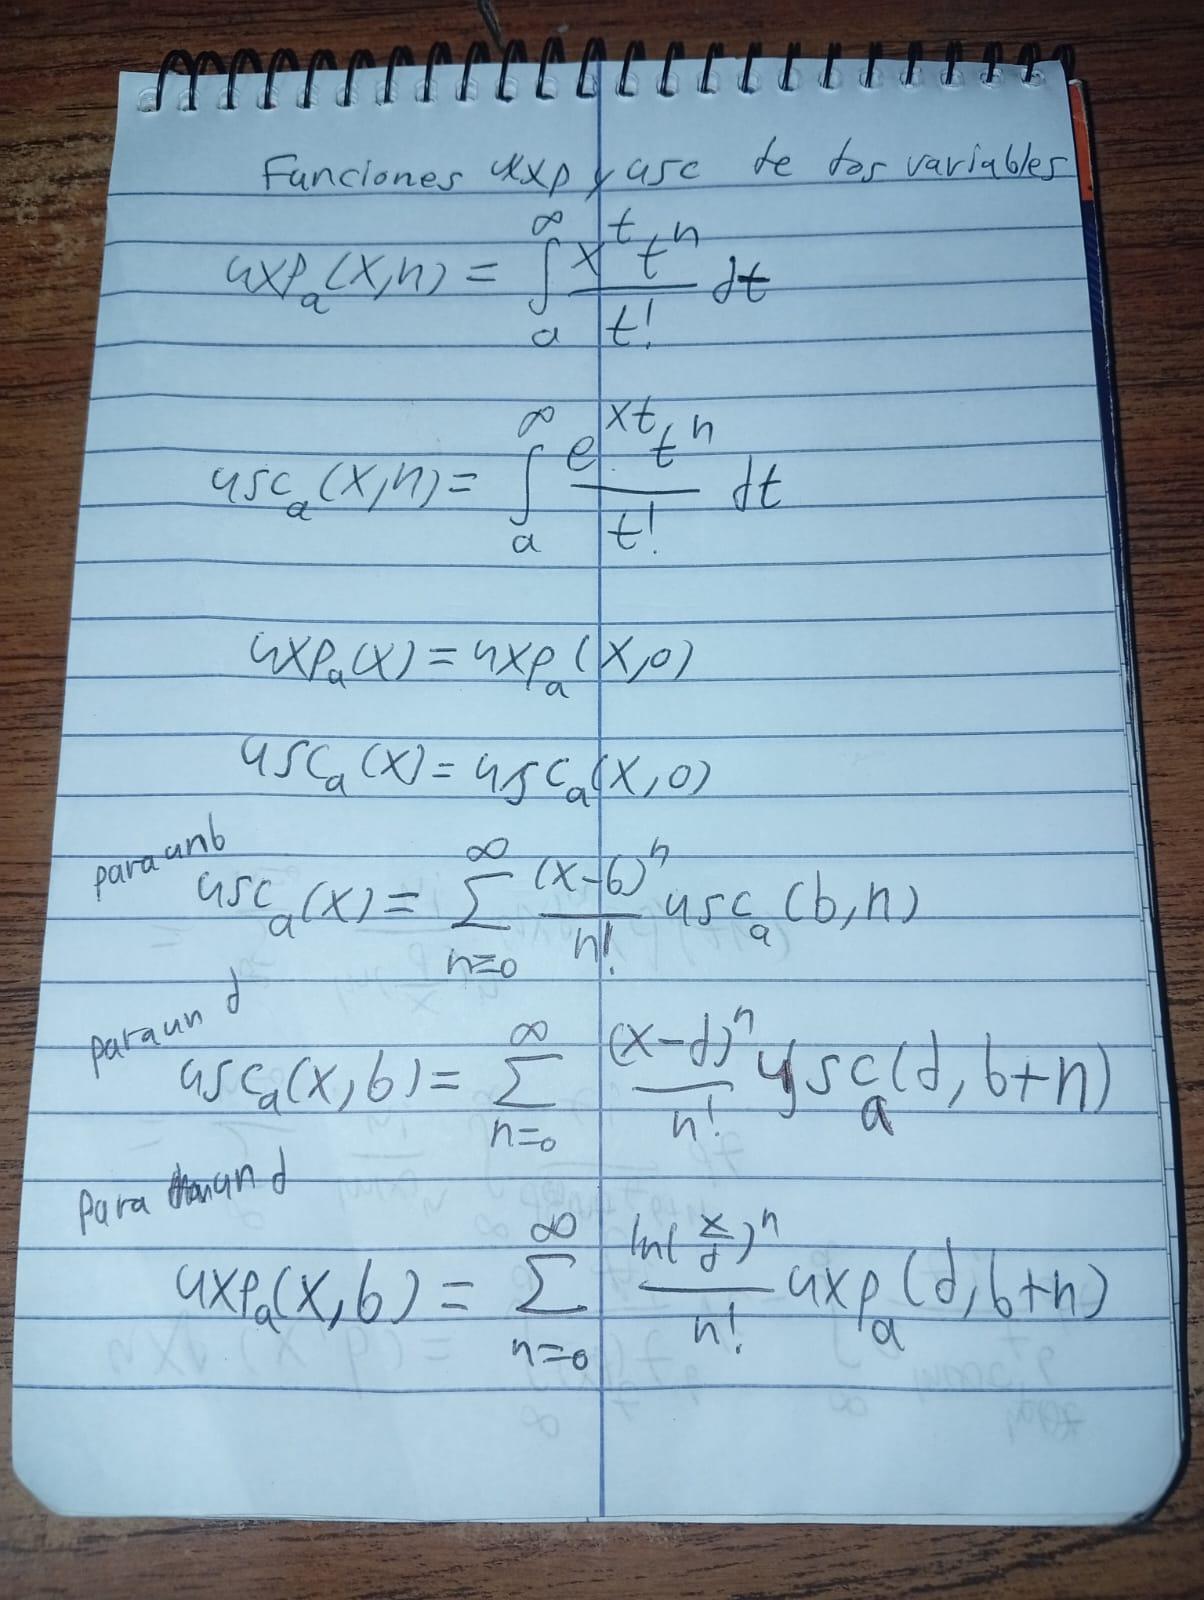 Funciones uxp y usc de dos variables
uxpₐ(x,n) = ∫ₐ^∞ x^t t^n / t! dt
uscₐ(x,n) = ∫ₐ^∞ e^{xt} t^n / t! dt
uxpₐ(x) = uxpₐ(x,0)
uscₐ(x) = uscₐ(x,0)
para un b
uscₐ(x) = ∑_{n=0}^∞ (x-b)^n / n! uscₐ(b,n)
para un d
uscₐ(x,b) = ∑_{n=0}^∞ (x-d)^n / n! uscₐ(d,b+n)
Para un d
uxpₐ(x,b) = ∑_{n=0}^∞ ln(x/d)^n / n! uxpₐ(d,b+n)